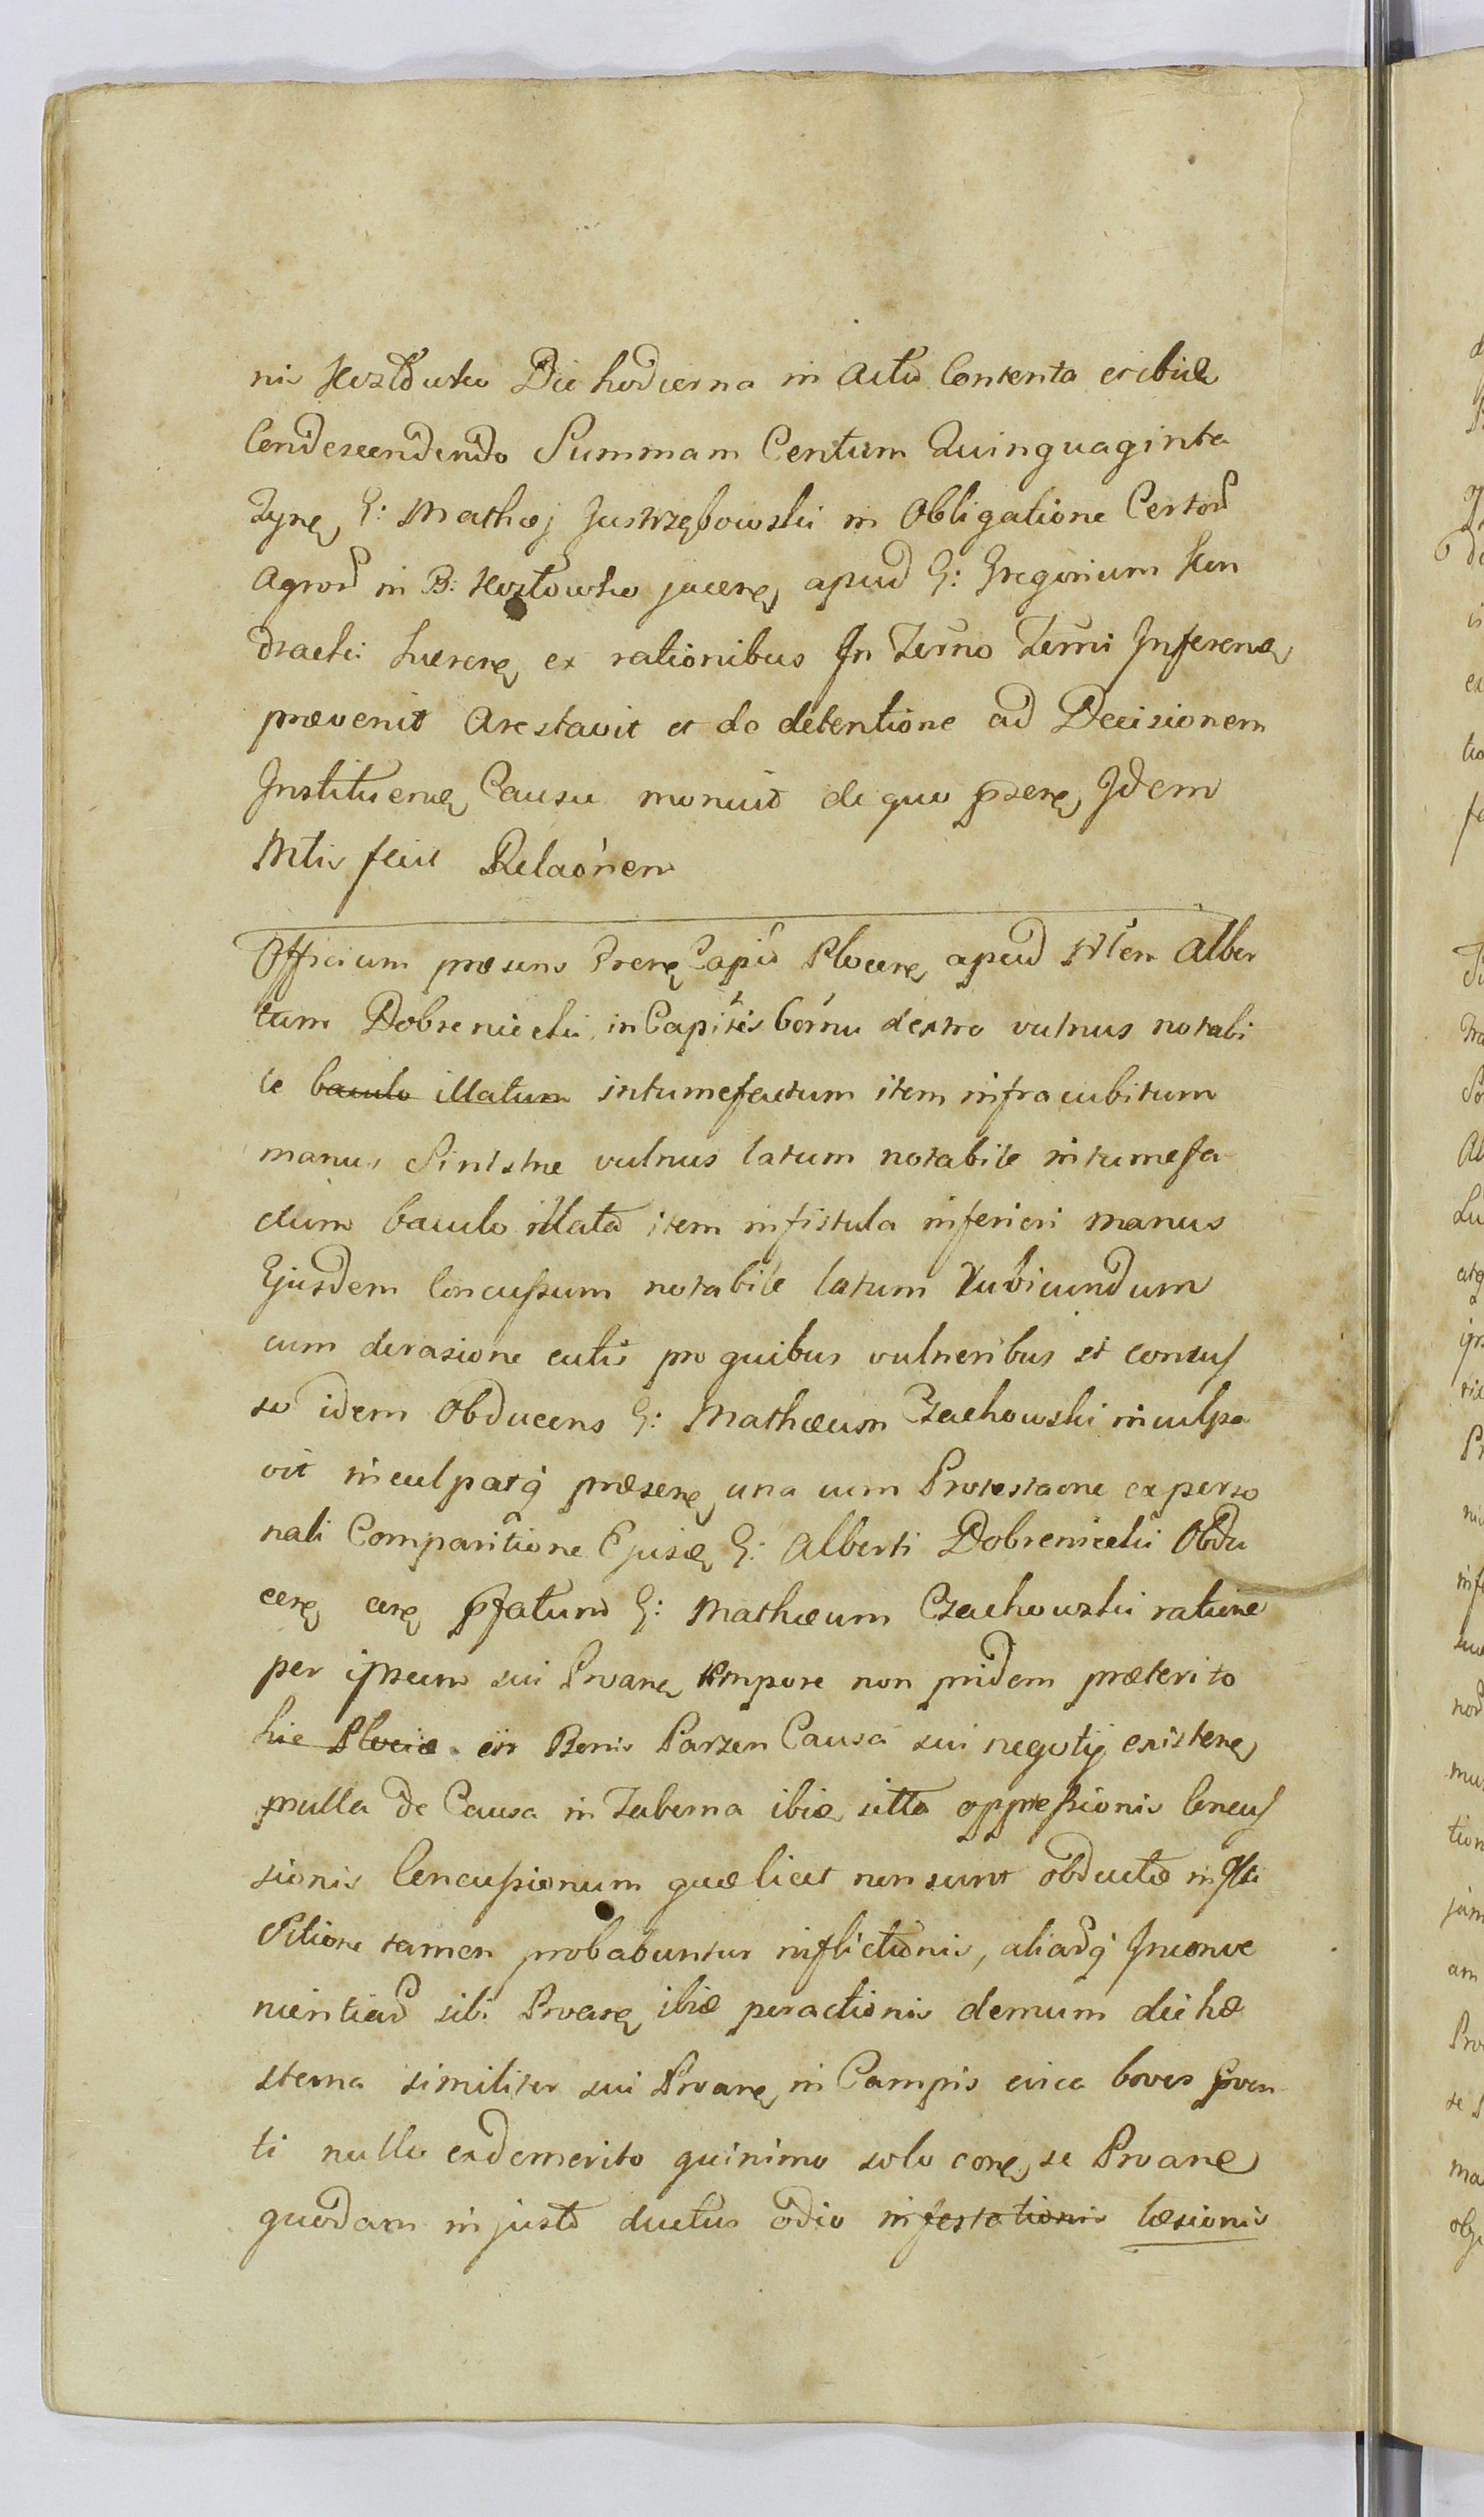 nis Kozłowko Die hodierna in Actu Contenta et ibidē
Condescendendo Summam Centum Quinquaginta
Tyne, G: Mathæj Jastrzębowski in Obligatione Certor
Agror in B: Kozłowko jacene, apud G: Gregorium Kon
dracki hærene, ex rationibus In Termo Termi Inferenda
prævenit Arestavit et de detentione ad Decisionem
Instituenæ, Causæ monuit de quo præne, Idem
Mtis fecit Relaonem
Officium præsens Prene Capit Plocene, apud Nlem Alber
tum Dobreniecki in Capitis Cornu dextro vulnus notabi
le baculo illatum intumefactum item infra cubitum
manus Sinistræ vulnus latum notabile intumefa
ctum baculo illato item in fistula inferiori manus
Ejusdem Concussum notabile latum Rubicundum
cum derasione cutis pro quibus vulneribus et concus
so idem Obducens G: Mathæum Czachowski inculpa
vit inculpatq præsene, una cum Protestaone ex perso
nali Comparitione Ejusdē, G: Alberti Dobreniecki Obdu
cene, cene, pfatum G: Mathæum Czachowski ratione
per ipsum sui Provane, tempore non pridem præterito
hic Plociæ in Bonis Parzen Causa sui negotij existene,
nulla de Causa in Taberna ibidē, sitta oppressionis Concus
sionis Concussionum quæ licet non sunt obductæ in Qsi
sitione tamen probabuntur inflictionis, aliarq Inconve
nientiar sibi Provane, ibidē peractionis demum die he
sterna similiter sui Provane, in Campis circa boves pven
ti nullo ex demerito quinimo solo cone, se Provane
quodam injusto ductus odio infestationis læsionis